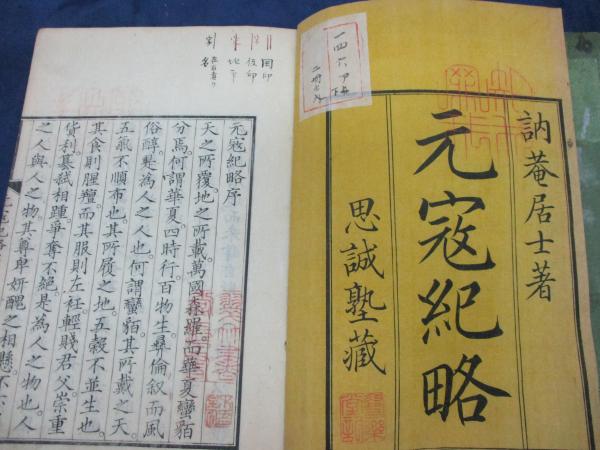 訥菴居士著
元寇紀略
思誠塾藏
一四六
國印
位印
地ヿ
元寇紀略序
天之所覆。地之所載。萬國森羅。而華夏蠻貊
分焉。何謂華夏。四時行。百物生。彝倫叙而風
俗醇。是為人之人也。何謂蠻貊。其所戴之天。
五氣不順布也。其所履之地。五穀不並生也。
其食則腥羶。而其服則左衽。輕賤君父。崇重
貨利。篡弑相踵。爭奪不絕。是為人之物也。人
之人與人之物。其尊卑妍醜之相懸。不